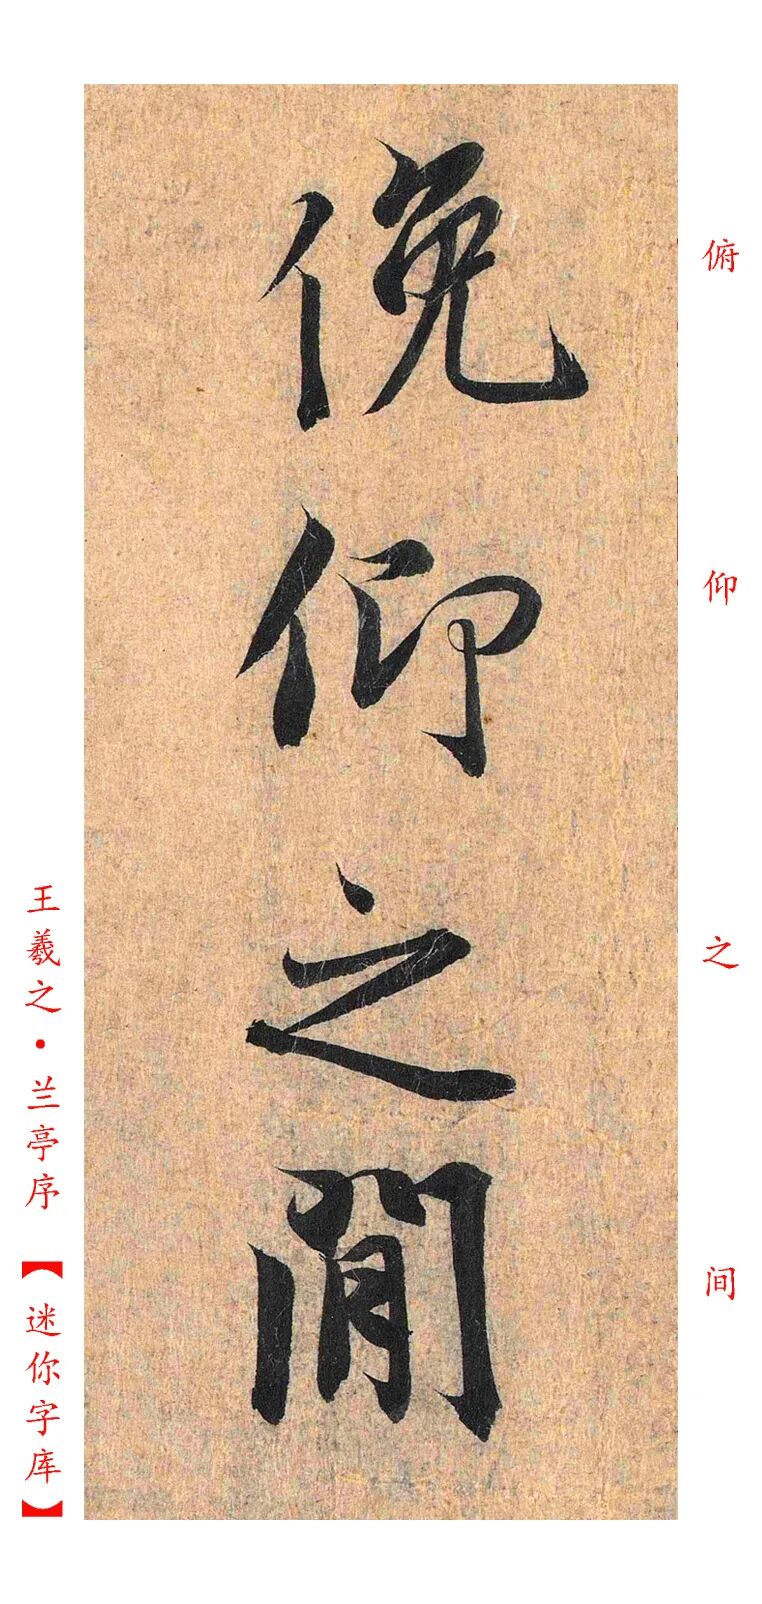 俯仰之间
俛仰之閒
王羲之·兰亭序【迷你字库】